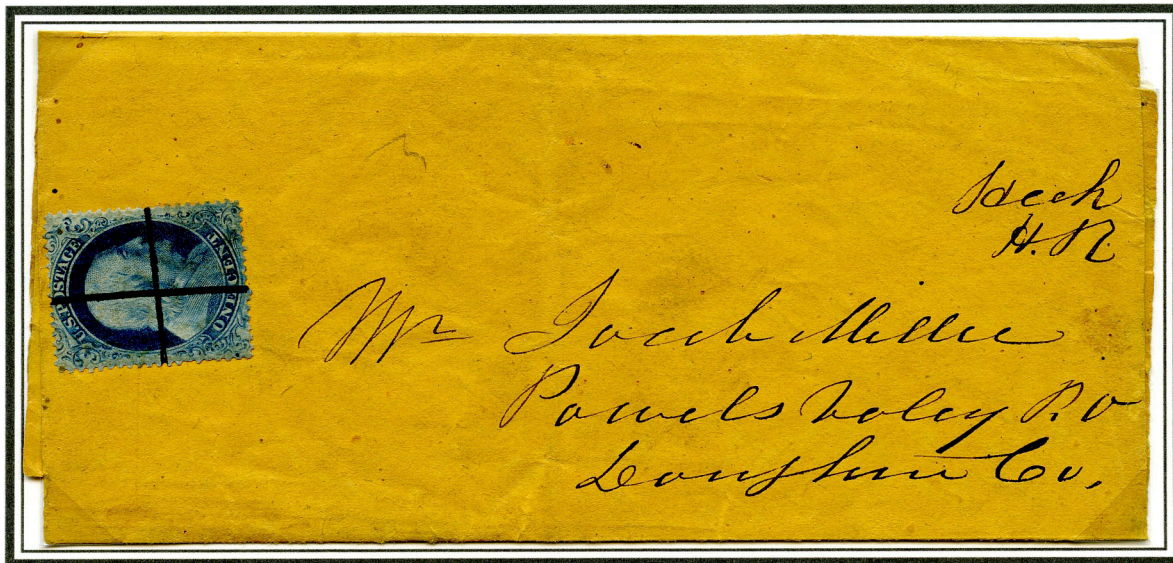 U.S. POSTAGE
ONE CENT
H. R
Mr Jacob Miller
Powels Valey P. O
Co,